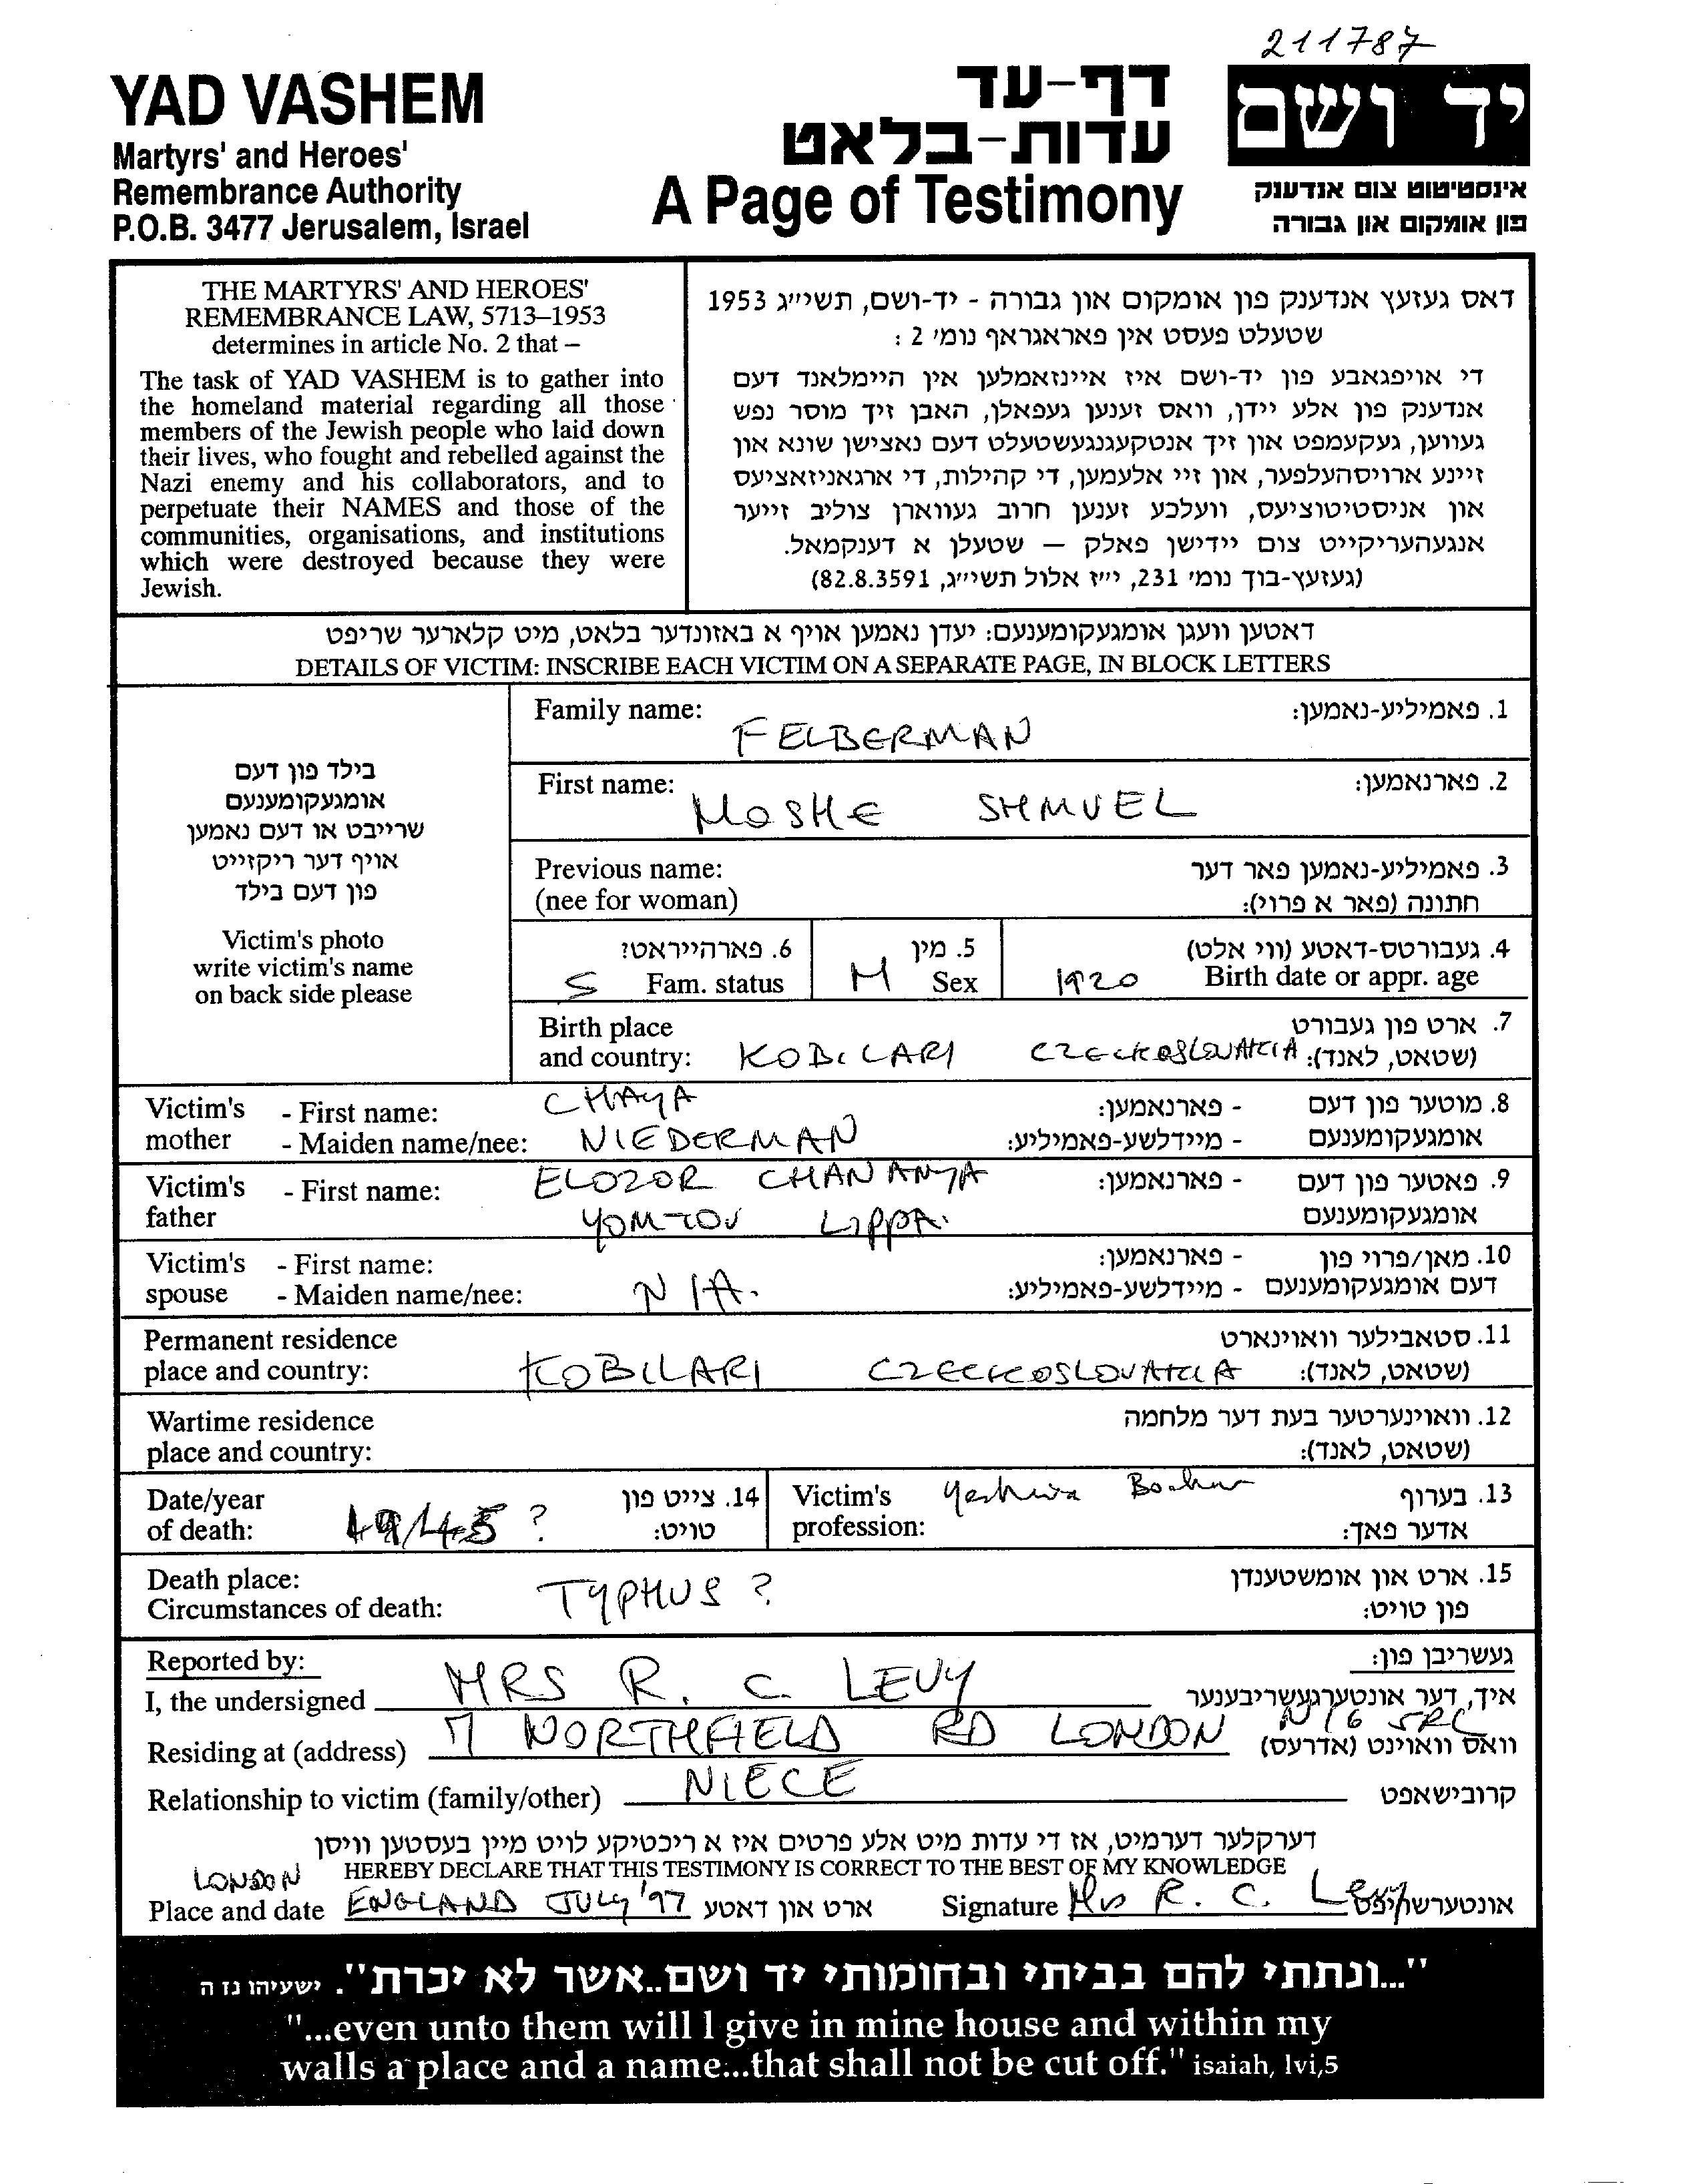 211787
YAD VASHEM
Martyrs' and Heroes'
Remembrance Authority
P.O.B. 3477 Jerusalem, Israel
דף-עד
עדות-בלאט
A Page of Testimony
יד ושם
אינסטיטוט צום אנדענק
פון אומקום און גבורה
THE MARTYRS' AND HEROES'
REMEMBRANCE LAW, 5713–1953
determines in article No. 2 that –
The task of YAD VASHEM is to gather into
the homeland material regarding all those
members of the Jewish people who laid down
their lives, who fought and rebelled against the
Nazi enemy and his collaborators, and to
perpetuate their NAMES and those of the
communities, organisations, and institutions
which were destroyed because they were
Jewish.
דאס געזעץ אנדענק פון אומקום און גבורה - יד-ושם, תשי״ג 1953
שטעלט פעסט אין פאראגראף נומ׳ 2 :
די אויפגאבע פון יד-ושם איז איינזאמלען אין היימלאנד דעם
אנדענק פון אלע יידן, וואס זענען געפאלן, האבן זיך מוסר נפש
געווען, געקעמפט און זיך אנטקעגנגעשטעלט דעם נאצישן שונא און
זיינע ארויסהעלפער, און זיי אלעמען, די קהילות, די ארגאניזאציעס
און אניסטיטוציעס, וועלכע זענען חרוב געווארן צוליב זייער
אנגעהעריקייט צום יידישן פאלק — שטעלן א דענקמאל.
(געזעץ-בוך נומ׳ 231, י״ז אלול תשי״ג, 82.8.3591)
דאטען וועגן אומגעקומענעם: יעדן נאמען אויף א באזונדער בלאט, מיט קלארער שריפט
DETAILS OF VICTIM: INSCRIBE EACH VICTIM ON A SEPARATE PAGE, IN BLOCK LETTERS
בילד פון דעם
אומגעקומענעם
שרייבט או דעם נאמען
אויף דער ריקזייט
פון דעם בילד
Victim's photo
write victim's name
on back side please
Family name: FELBERMAN 1. פאמיליע-נאמען:
First name: MOSHE SHMUEL 2. פארנאמען:
Previous name: 3. פאמיליע-נאמען פאר דער
(nee for woman) חתונה (פאר א פרוי):
6. פארהייראט? 5. מין 4. געבורטס-דאטע (ווי אלט)
S Fam. status M Sex 1920 Birth date or appr. age
Birth place 7. ארט פון געבורט
and country: KOBILARI CZECKOSLOVAKIA (שטאט, לאנד):
Victim's - First name: CHAYA - פארנאמען: 8. מוטער פון דעם
mother - Maiden name/nee: NIEDERMAN - מיידלשע-פאמיליע: אומגעקומענעם
Victim's - First name: ELOZOR CHANANYA - פארנאמען: 9. פאטער פון דעם
father YOMTOV LIPPA. אומגעקומענעם
Victim's - First name: - פארנאמען: 10. מאן/פרוי פון
spouse - Maiden name/nee: N/A. - מיידלשע-פאמיליע: דעם אומגעקומענעם
Permanent residence 11. סטאבילער וואוינארט
place and country: KOBILARI CZECKOSLOVAKIA (שטאט, לאנד):
Wartime residence 12. וואוינערטער בעת דער מלחמה
place and country: (שטאט, לאנד):
Date/year 14. צייט פון Victim's Yeshiva Bochur 13. בערוף
of death: 1945 ? טויט: profession: אדער פאך:
Death place: 15. ארט און אומשטענדן
Circumstances of death: TYPHUS ? פון טויט:
Reported by: געשריבן פון:
I, the undersigned MRS R. C. LEVY איך, דער אונטערגעשריבענער
Residing at (address) 7 NORTHFIELD RD LONDON N16 5RL וואס וואוינט (אדרעס)
Relationship to victim (family/other) NIECE קרובישאפט
דערקלער דערמיט, אז די עדות מיט אלע פרטים איז א ריכטיקע לויט מיין בעסטען וויסן
HEREBY DECLARE THAT THIS TESTIMONY IS CORRECT TO THE BEST OF MY KNOWLEDGE
LONDON
Place and date ENGLAND JULY '97 ארט און דאטע Signature Mrs R. C. Levy אונטערשריפט
"...ונתתי להם בביתי ובחומותי יד ושם..אשר לא יכרת". ישעיהו נז ה
"...even unto them will I give in mine house and within my
walls a place and a name...that shall not be cut off." isaiah, lvi,5